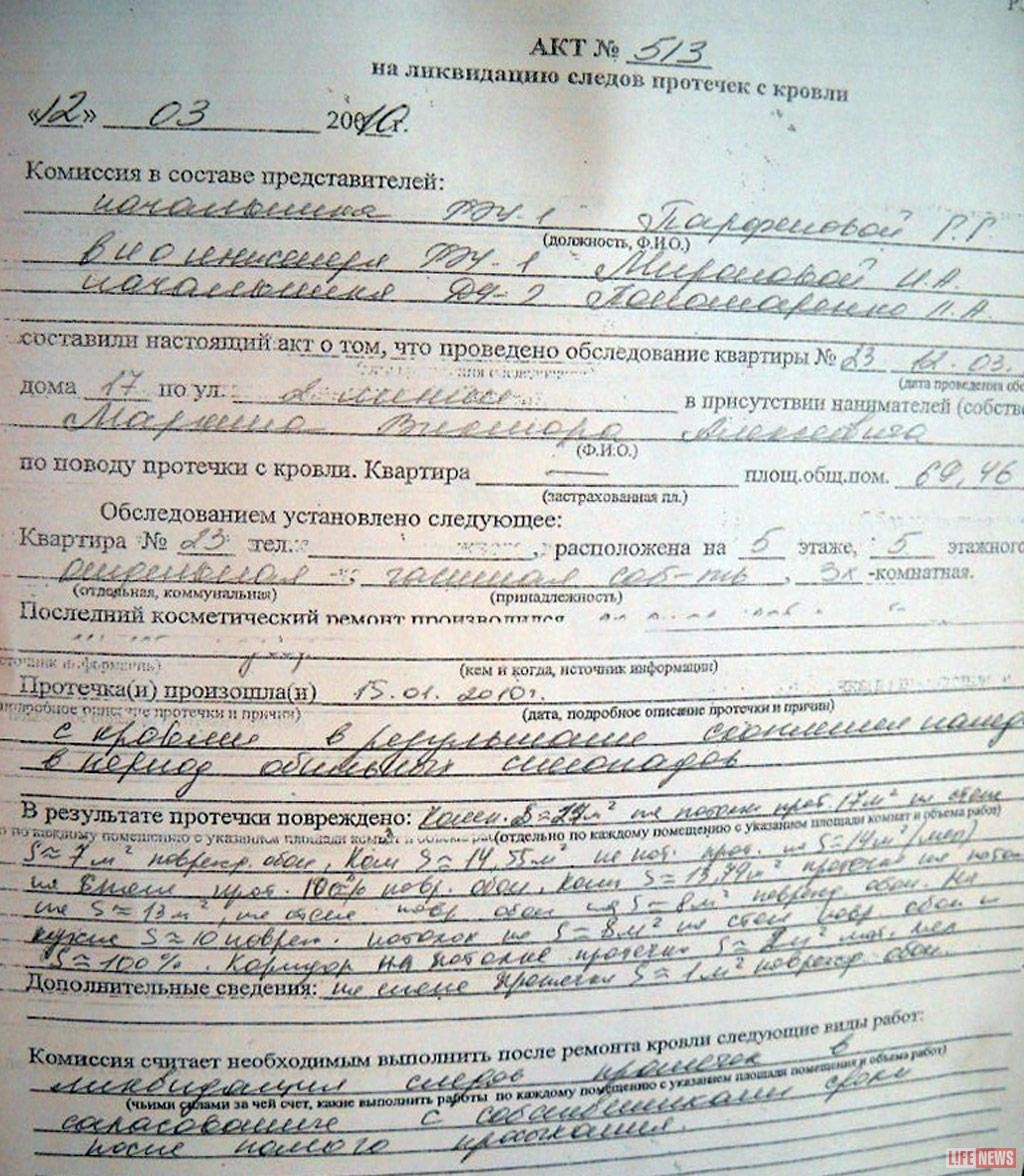 АКТ № 513
на ликвидацию следов протечек с кровли
«12» 03 2010г.
Комиссия в составе представителей:
начальника ТЭУ-1 Парфеновой Г.Г
(должность, Ф.И.О.)
инженера ТЭУ-1 Мироновой Н.А.
начальника ДУ-2 Пономаренко Н.А
составили настоящий акт о том, что проведено обследование квартиры № 23 12.03.
(дата проведения обс
дома 17 по ул. 2 линия в присутствии нанимателей (собстве
Виктора Алексеевича
(Ф.И.О.)
по поводу протечки с кровли. Квартира — площ.общ.пом. 69,46
(застрахованная пл.)
Обследованием установлено следующее:
Квартира № 23 тел.: , расположена на 5 этаже, 5 этажного
отдельная , частная соб-ть , 3х -комнатная.
(отдельная, коммунальная) (принадлежность)
Последний косметический ремонт производился
(кем и когда, источник информации)
Протечка(и) произошла(и) 15.01. 2010г.
(дата, подробное описание протечки и причин)
с кровли в результате скопления
в период обильных снегопадов
В результате протечки повреждено: S≈ м² на потолке прот. 17м² на стене
(отдельно по каждому помещению с указанием площади комнат и объема работ)
S≈7м² поврежд. обои, Ком S≈14,55м². на пот. прот. на S≈14м²
на стене прот. 100% повр. обои. Ком S≈13,79м² протечка на потол
на S≈13м², на стене повр обои на S≈8м² поврежд обои На
кухне S≈10 поврежд. потолок на S≈8м² на стене повр обои
S≈100%. Коридор на потолке протечка S≈2м²
Дополнительные сведения: на стене протечка S≈1м² поврежд обои.
Комиссия считает необходимым выполнить после ремонта кровли следующие виды работ:
ликвидация следов протечек в
(чьими силами за чей счет, какие выполнить работы по каждому помещению с указанием площади помещения и объема работ)
согласование с собственниками сроки
после полного просыхания.
LIFE NEWS